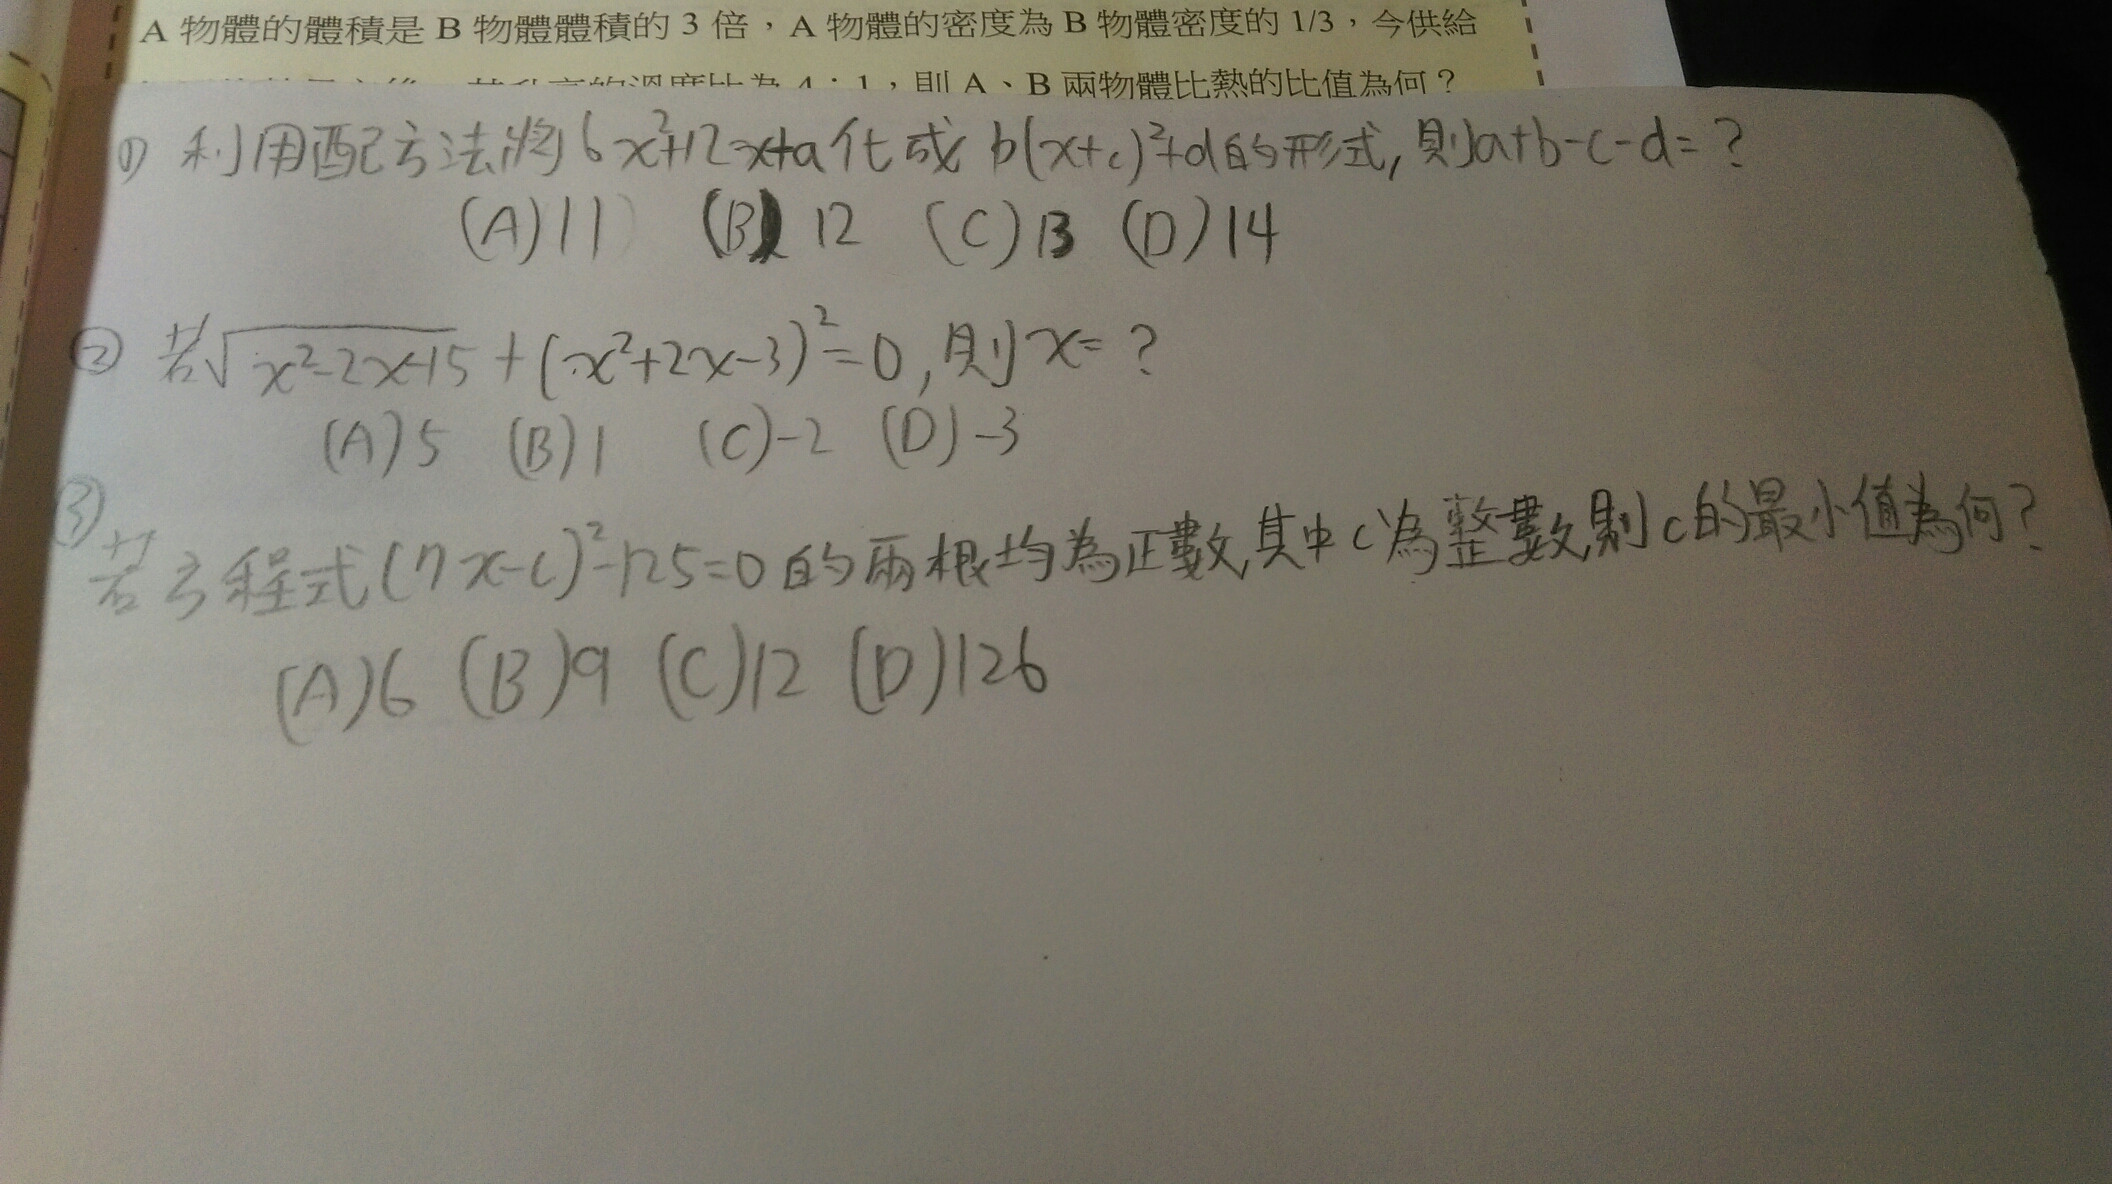 A 物體的體積是 B 物體體積的 3 倍，A 物體的密度為 B 物體密度的 1/3，今供給
4：1，則 A、B 兩物體比熱的比值為何？
(1) 利用配方法將6x²+12x+a化成 b(x+c)²+d的形式,則a+b-c-d=？
(A)11 (B) 12 (C)13 (D)14
② 若√x²-2x-15 + (x²+2x-3)²=0,則x=？
(A)5 (B)1 (C)-2 (D)-3
③
若方程式(7x-c)²-125=0的兩根均為正數,其中c為整數,則c的最小值為何？
(A)6 (B)9 (C)12 (D)126